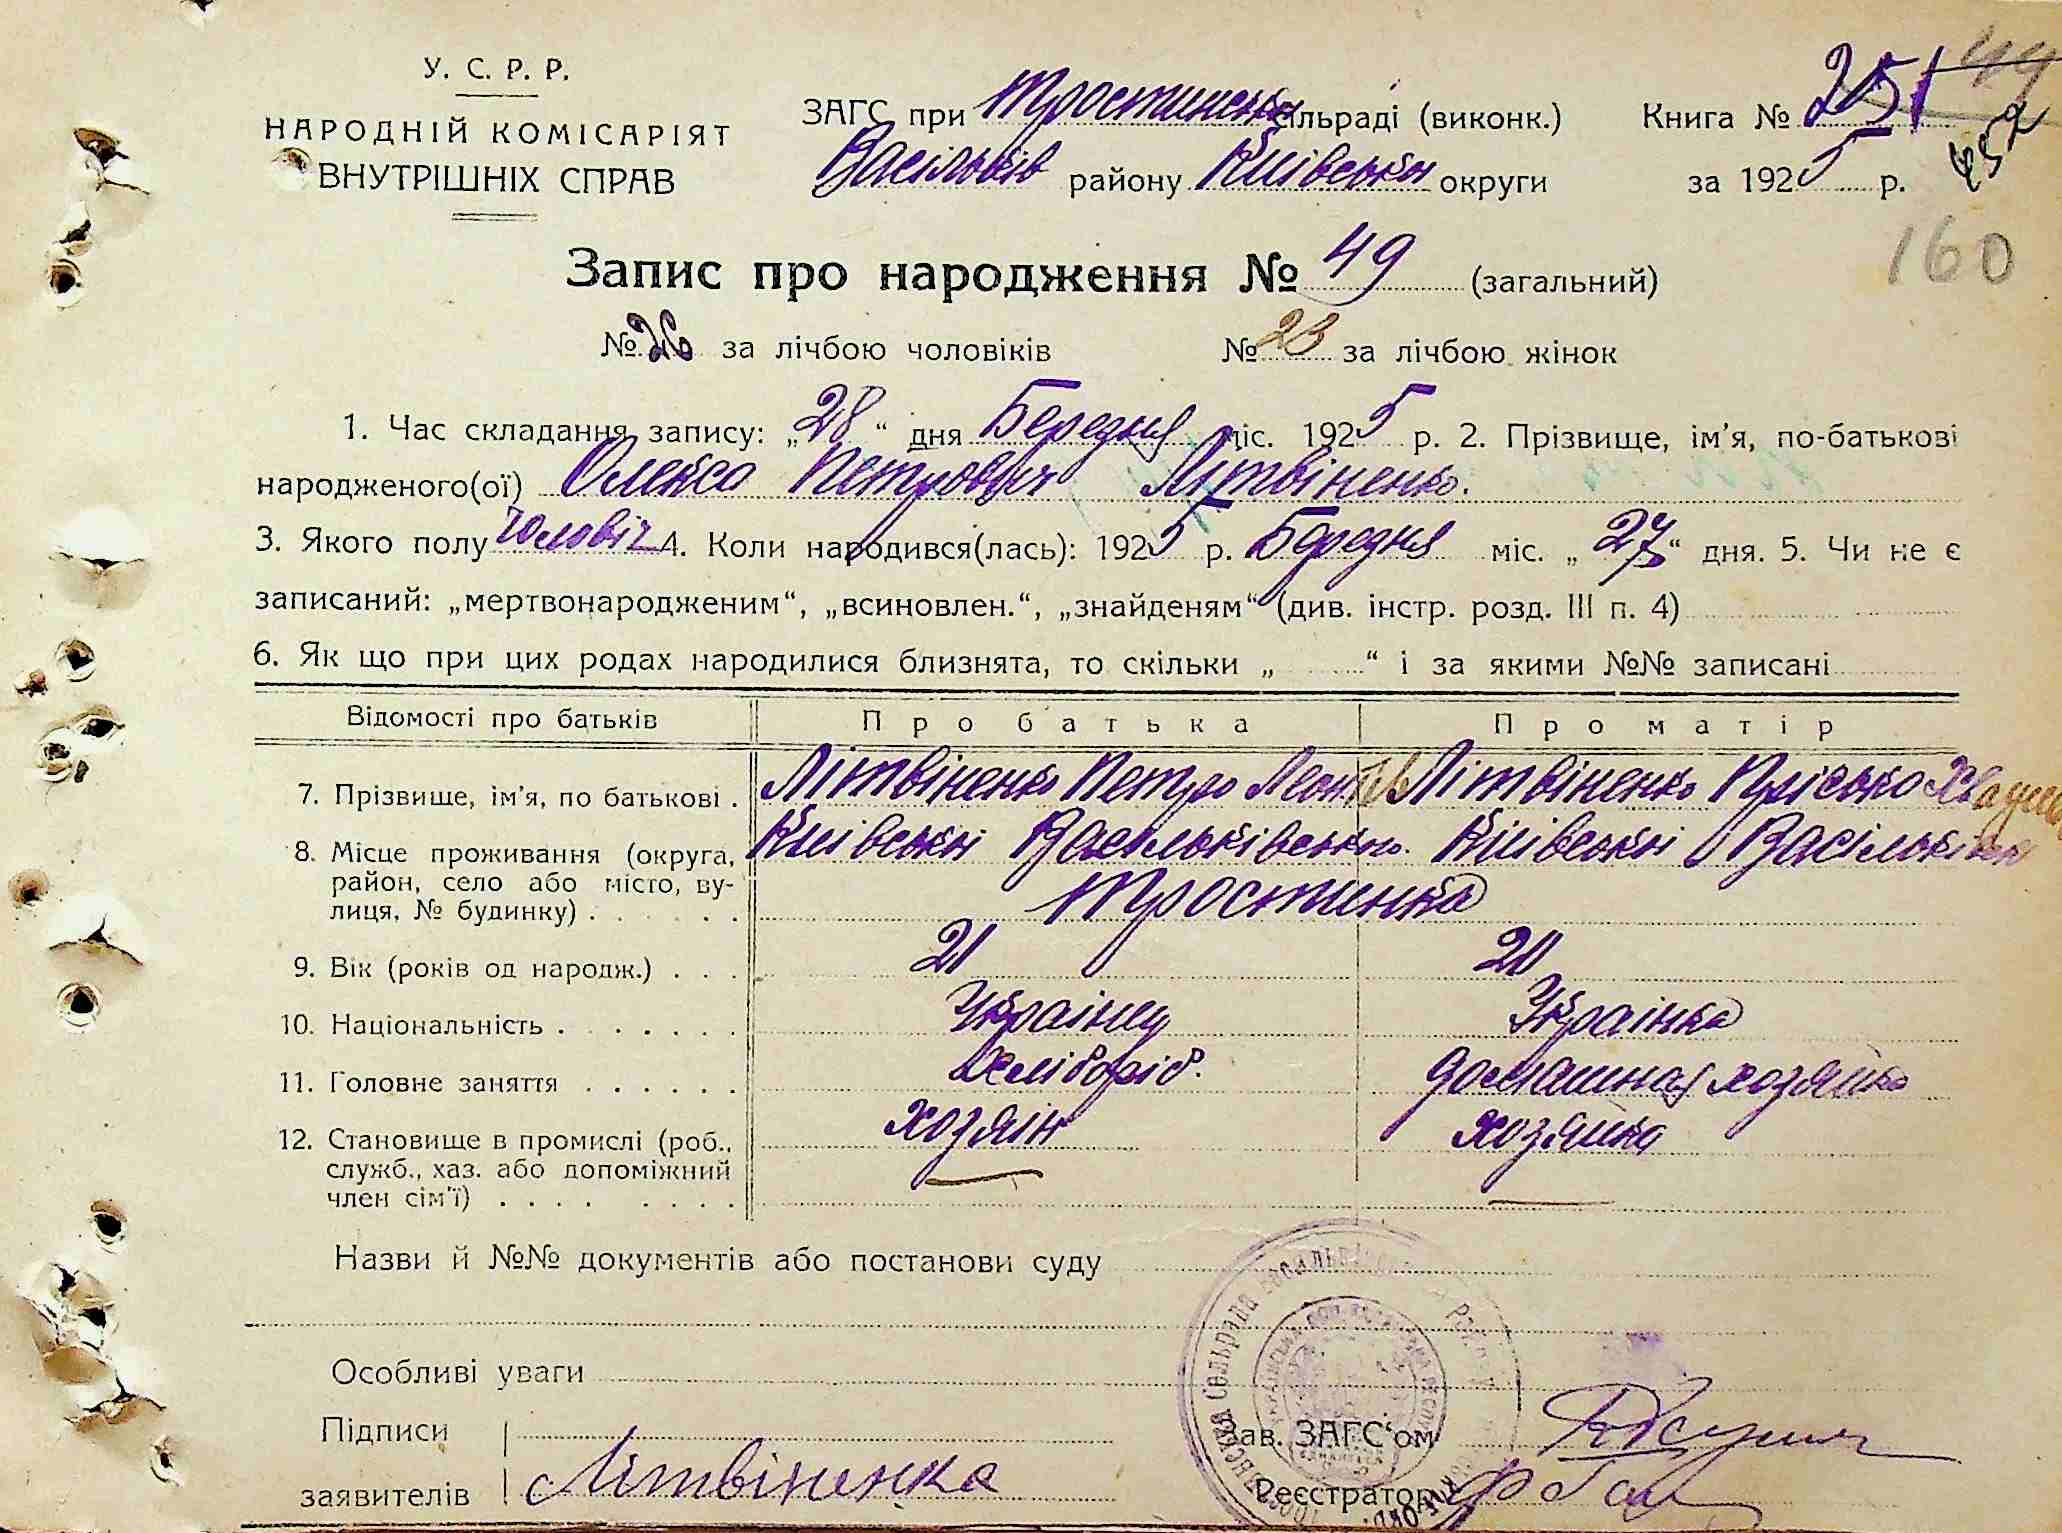 У. С. Р. Р.
НАРОДНІЙ КОМІСАРІЯТ
ВНУТРІШНІХ СПРАВ
ЗАГС при Тростинськ сільраді (виконк.)
Васільків району Київськи округи
Книга № 251 49
452
за 1925 р.
160
Запис про народження № 49 (загальний)
№ 26 за лічбою чоловіків № 23 за лічбою жінок
1. Час складання запису: „28“ дня Березня міс. 1925 р. 2. Прізвище, ім'я, по-батькові
народженого(ої) Олекса Петрович Літвіненко.
3. Якого полу Чоловіч 4. Коли народився(лась): 1925 р. Березня міс. „27“ дня. 5. Чи не є
записаний: „мертвонародженим“, „всиновлен.“, „знайденям“ (див. інстр. розд. III п. 4)
6. Як що при цих родах народилися близнята, то скільки „ “ і за якими №№ записані
Відомості про батьків Про батька Про матір
7. Прізвище, ім'я, по батькові . Літвіненко Петро Леонтів Літвіненко Пріська
8. Місце проживання (округа, район, село або місто, ву-лиця, № будинку) . Київські Васильківськ. Київські Васільків
Тростинка
9. Вік (років од народж.) . . . 21 20
10. Національність . . . . . . . Українец Українка
11. Головне заняття . . . . . . Хліборіб. домашная хозяйка
12. Становище в промислі (роб., служб., хаз. або допоміжний член сім'ї) . . . . . . . . хозяін хозяйка
Назви й №№ документів або постанови суду
Особливі уваги
Підписи
заявителів Літвіненка
Зав. ЗАГС'ом
Реєстратор